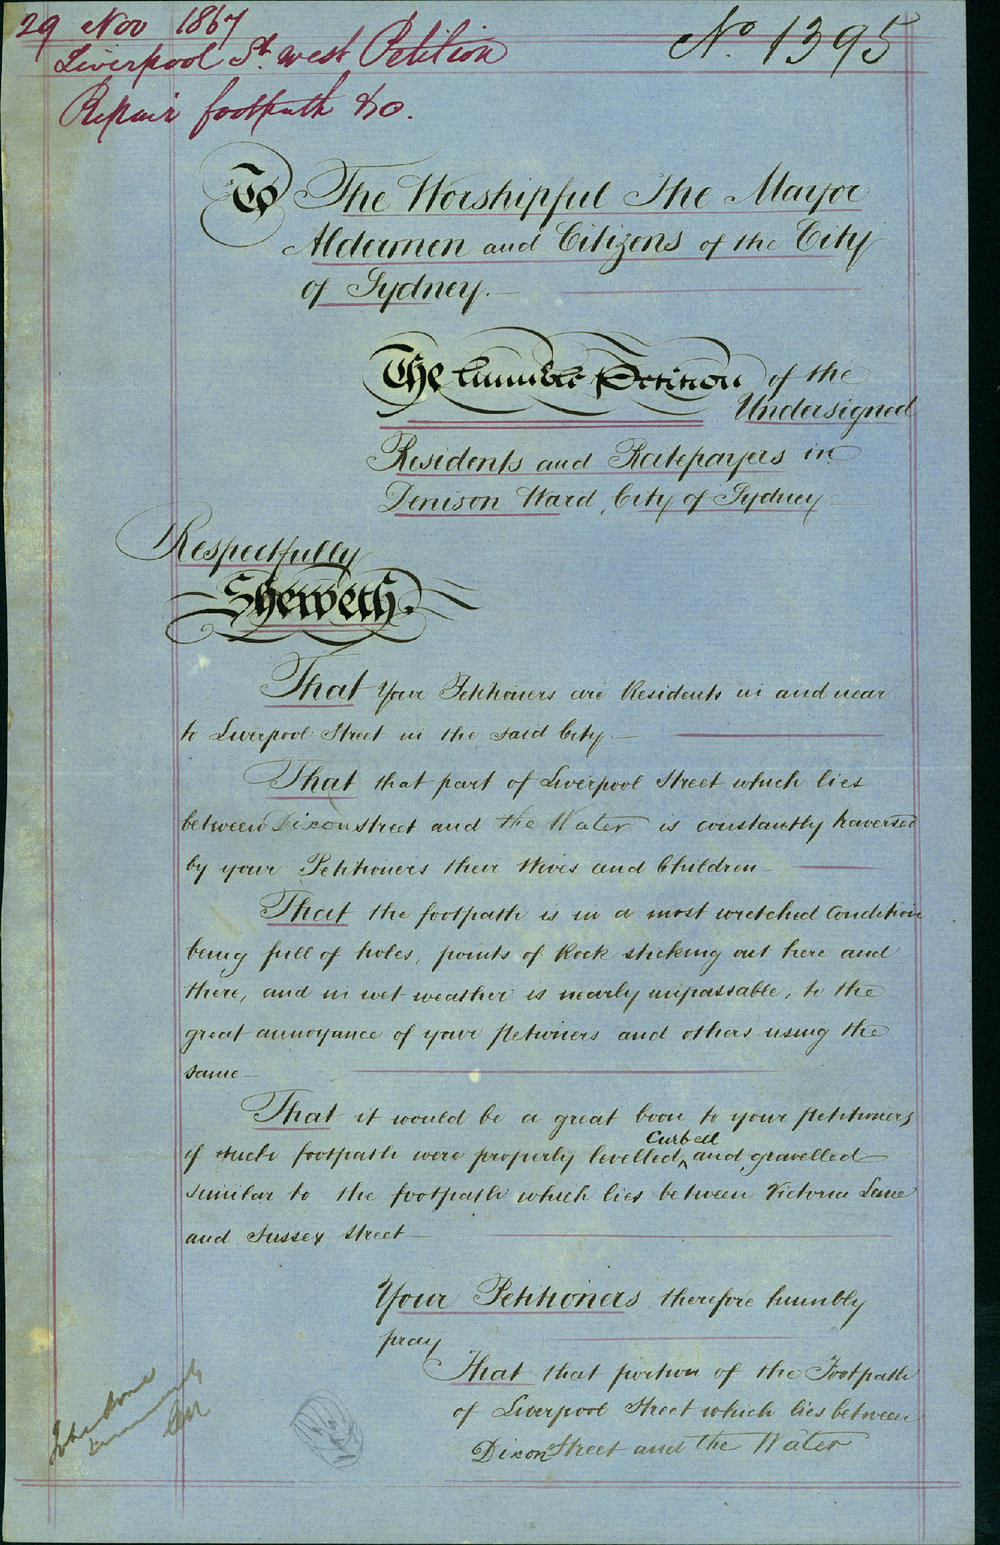 29 Nov 1867
Liverpool St. west Petition
Repair footpath &c.
No 1395
To The Worshipful The Mayor
Aldermen and Citizens of the City
of Sydney.
The humble Petition of the
Undersigned
Residents and Ratepayers in
Denison Ward, City of Sydney
Respectfully
Sheweth.
That your Petitioners are Residents in and near
to Liverpool Street in the said City.
That that part of Liverpool Street which lies
between Dixon street and the Water is constantly traversed
by your Petitioners their Wives and Children
That the footpath is in a most wretched Condition
being full of holes, points of Rock sticking out here and
there, and in wet weather is nearly impassable, to the
great annoyance of your petioners and others using the
same
That it would be a great boon to your petitioners
Curbed
if such footpath were properly levelled, and, gravelled
similar to the footpath which lies between Victoria Lane
and Sussex Street
Your Petitioners therefore humbly
pray
That that portion of the Footpath
of Liverpool Street which lies between
Dixon Street and the Water